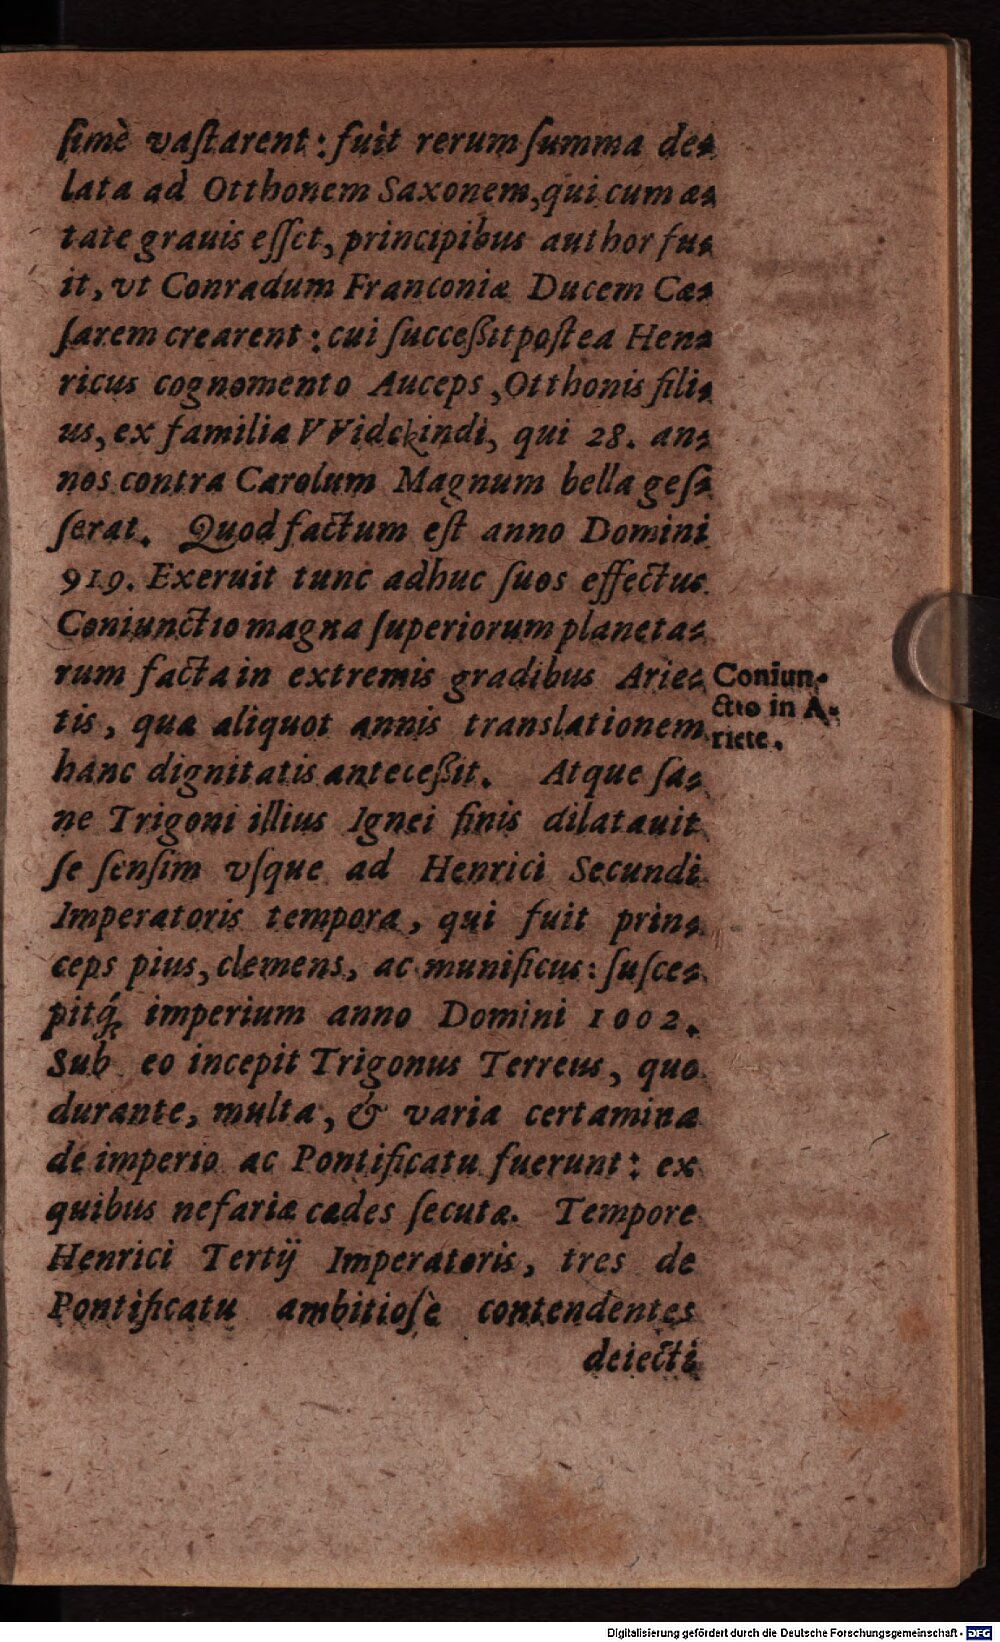 ſimè vaſtarent: fuit rerum ſumma de-
lata ad Otthonem Saxonem, qui cum æ-
tate grauis eſſet, principibus author fu-
it, vt Conradum Franconiæ Ducem Cæ-
ſarem crearent: cui ſucceßit poſtea Hen-
ricus cognomento Auceps, Otthonis fili-
us, ex familia VVidekindi, qui 28. an-
nos contra Carolum Magnum bella geſ-
ſerat. Quod factum eſt anno Domini
919. Exeruit tunc adhuc ſuos effectus
Coniunctio magna ſuperiorum planeta-
rum facta in extremis gradibus Arie-
tis, quæ aliquot annis translationem
hanc dignitatis anteceßit. Atque ſa-
ne Trigoni illius Ignei finis dilatauit
ſe ſenſim vſque ad Henrici Secundi
Imperatoris tempora, qui fuit prin-
ceps pius, clemens, ac munificus: ſuſce-
pitq́; imperium anno Domini 1002.
Sub eo incepit Trigonus Terreus, quo
durante, multa, & varia certamina
de imperio ac Pontificatu fuerunt: ex
quibus nefariæ cædes ſecutæ. Tempore
Henrici Tertij Imperatoris, tres de
Pontificatu ambitioſè contendentes
deiecti
Coniun-
ctio in A-
riete.
Digitalisierung gefördert durch die Deutsche Forschungsgemeinschaft - DFG